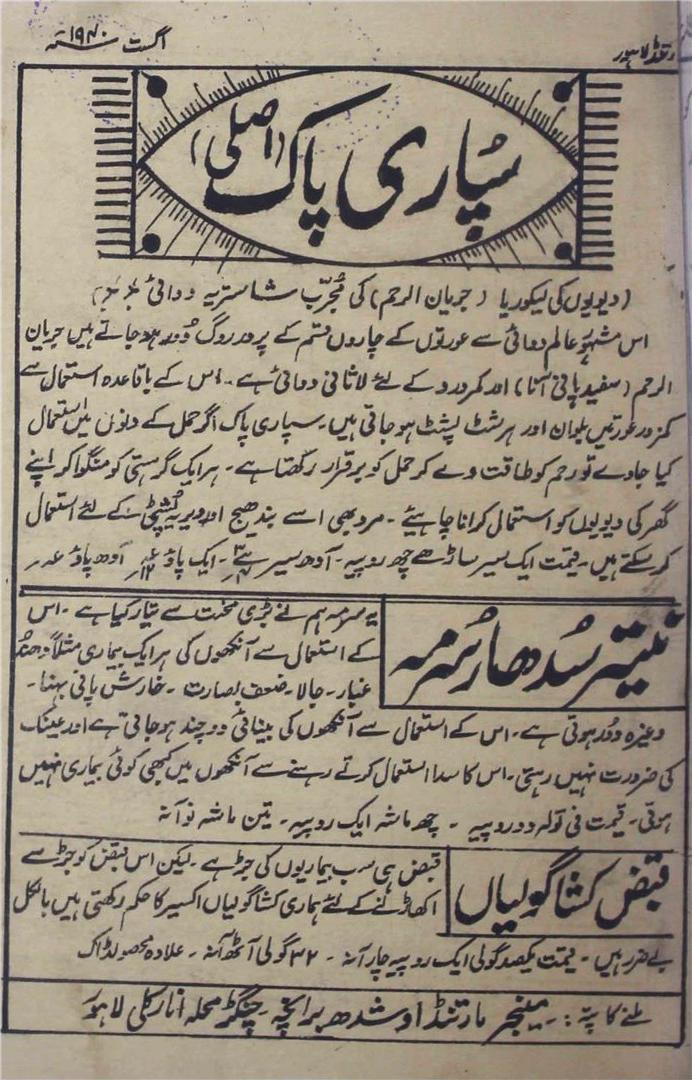 رتنڈ لاہور
اگست ۱۹۴۰ سنہ
سُپاری پاک (اصلی)
(دیویوں کی لیکوریا (جریان الرحم) کی مُجرّب شاستریہ دوائی)
اس مشہورِ عالم دوائی سے عورتوں کے چاروں قسم کے پردر روگ دُور ہو جاتے ہیں جریان
الرحم (سفید پانی آنا) اور کمر درد کے لئے لاثانی دوائی ہے۔ اس کے باقاعدہ استعمال سے
کمزور عورتیں بلوان اور ہرشٹ پشٹ ہو جاتی ہیں۔ سپاری پاک اگر حمل کے دنوں میں استعمال
کیا جاوے تو رحم کو طاقت دے کر حمل کو برقرار رکھتا ہے۔ ہر ایک گرہستی کو منگوا کر اپنے
گھر کی دیویوں کو استعمال کرانا چاہیئے۔ مرد بھی اسے بندھیج اور ویریہ پُشٹی کے لئے استعمال
کر سکتے ہیں۔ قیمت ایک سیر ساڑھے چھ روپیہ۔ آدھ سیر۔ ایک پاؤ۔ آدھ پاؤ
نیتر سُدھار سُرمہ
یہ سرمہ ہم نے بڑی محنت سے تیار کیا ہے۔ اس
کے استعمال سے آنکھوں کی ہر ایک بیماری مثلاً دھند
غبار۔ جالا۔ ضعف بصارت۔ خارش پانی بہنا۔
وغیرہ دُور ہوتی ہے۔ اس کے استعمال سے آنکھوں کی بینائی دوچند ہو جاتی ہے اور عینک
کی ضرورت نہیں رہتی۔ اس کا سدا استعمال کرتے رہنے سے آنکھوں میں کبھی کوئی بیماری نہیں
ہوتی۔ قیمت فی تولہ دو روپیہ۔ چھ ماشہ ایک روپیہ۔ تین ماشہ نو آنہ
قبض کشا گولیاں
قبض ہی سب بیماریوں کی جڑ ہے۔ لیکن اس قبض کو جڑ سے
اکھاڑنے کے لئے ہماری کشا گولیاں اکسیر کا حکم رکھتی ہیں بالکل
بے ضرر ہیں۔ قیمت یکصد گولی ایک روپیہ چار آنہ۔ ۳۲ گولی آٹھ آنہ۔ علاوہ محصولڈاک
ملنے کا پتہ:۔ مینجر مارتنڈ اوشدھ برانچہ۔ چنگڑ محلہ انارکلی لاہور